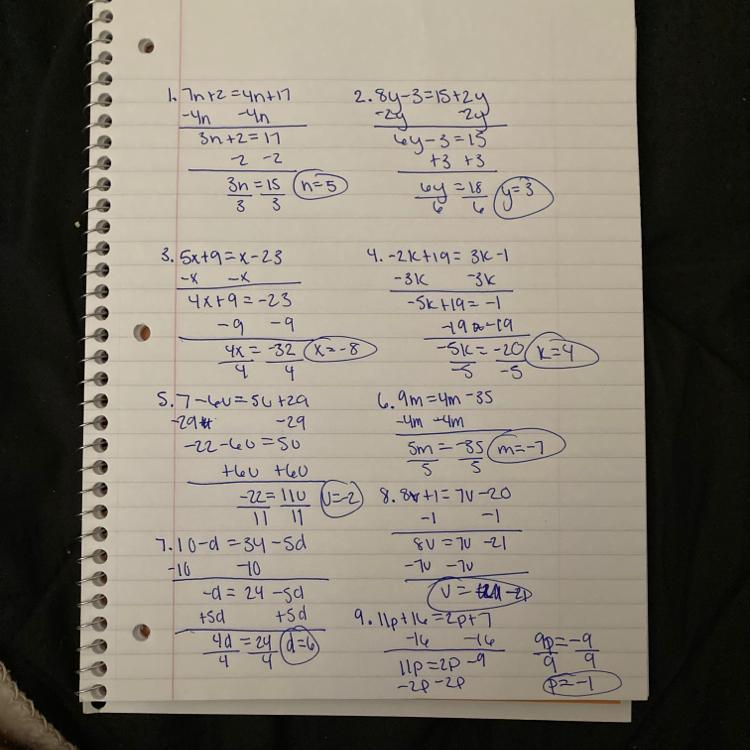 1. 7n+2=4n+17
-4n -4n
3n+2=17
-2 -2
3n=15
3 3
n=5
2. 8y-3=15+2y
-2y -2y
6y-3=15
+3 +3
6y=18
6 6
y=3
3. 5x+9=x-23
-x -x
4x+9=-23
-9 -9
4x=-32
4 4
x=-8
4. -2k+19=3k-1
-3k -3k
-5k+19=-1
-19 -19
-5k=-20
-5 -5
k=4
5. 7-6u=5u+29
-29 -29
-22-6u=5u
+6u +6u
-22=11u
11 11
u=-2
6. 9m=4m-35
-4m -4m
5m=-35
5 5
m=-7
7. 10-d=34-5d
-10 -10
-d=24-5d
+5d +5d
4d=24
4 4
d=6
8. 8v+1=7v-20
-1 -1
8v=7v-21
-7v -7v
v=-21
9. 11p+16=2p+7
-16 -16
11p=2p-9
-2p -2p
9p=-9
9 9
p=-1